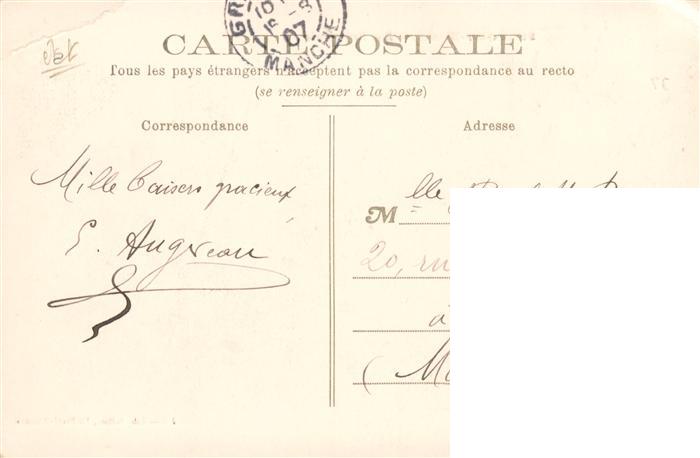 CARTE POSTALE
Tous les pays étrangers n'acceptent pas la correspondance au recto
(se renseigner à la poste)
GR
10
16 -8
07
MANCHE
Correspondance
Mille baisers gracieux
E. Augereau
Adresse
Mlle
20, ru
à
(M